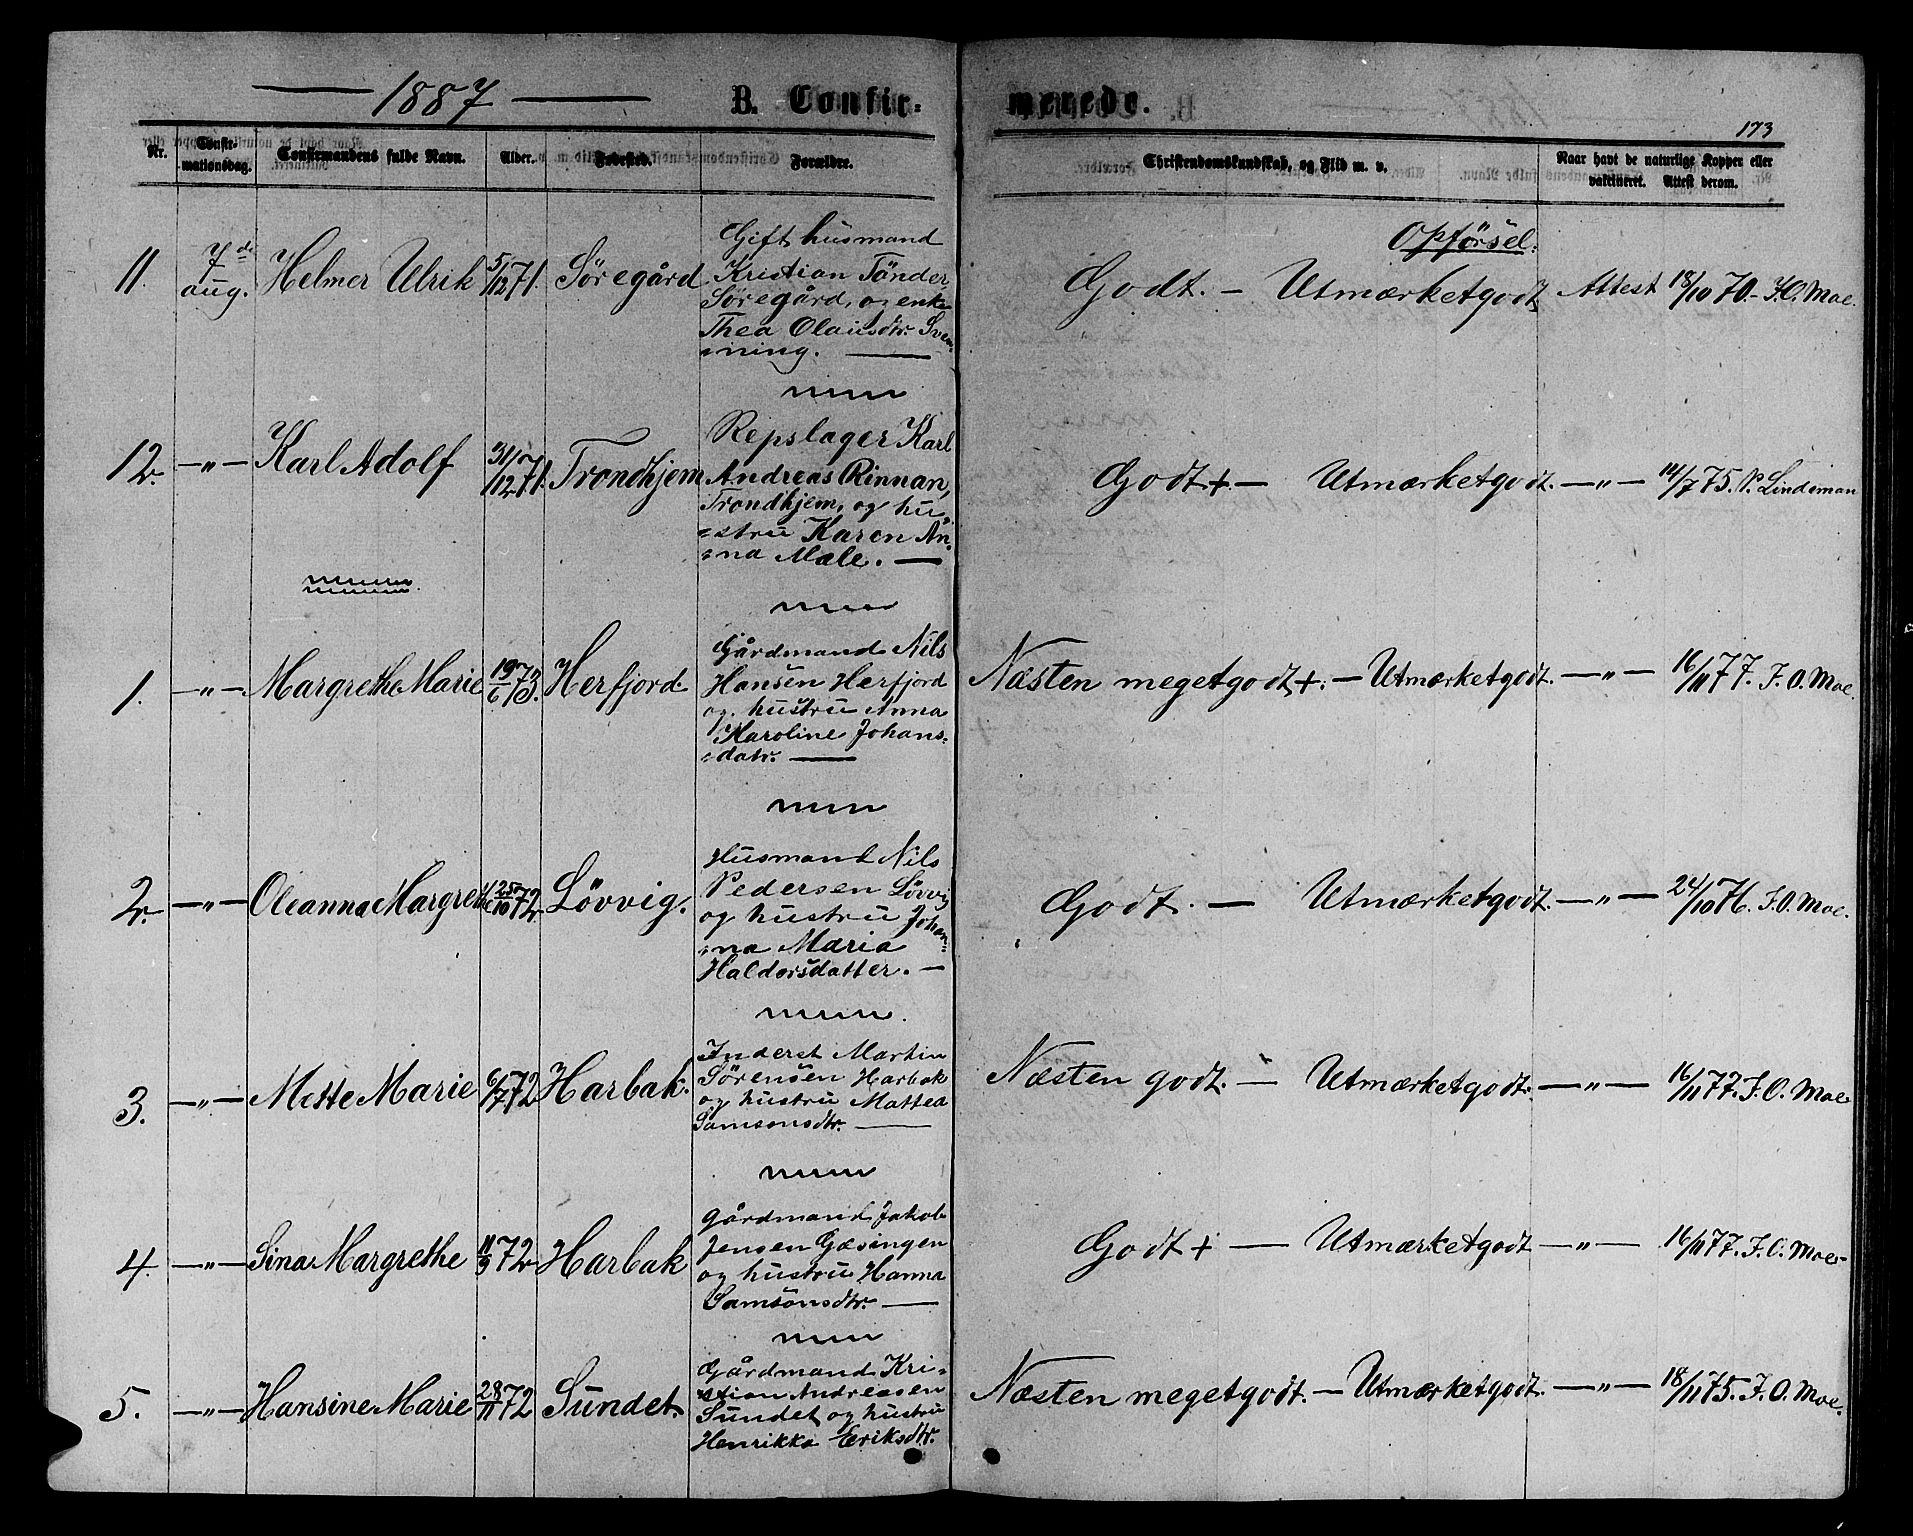 1887 B. Confirmerede.
173
Nr. Confirmationsdag. Confirmandens fulde Navn. Alder. Fødested. Forældre. Christendomskundskab, og Flid m. v. Naar havt de naturlige Kopper eller vakcineret. Attest derom.
Opförsel.
11. 7de aug. Helmer Ulrik 5/12 71. Söregård
Gift husmand
Kristian Tönder,
Söregård, og enke
Thea Olausdtr. Svem-
-ning. —
Godt. — Utmærketgodt Attest 18/10 70. - J.O. Moe.
12. —"— Karl Adolf 31/12 71. Trondhjem
Repslager Karl
Andreas Rinnan,
Trondhjem, og hu-
-stru Karen An-
-na Male. —
Godt +. — Utmærketgodt. —"— 14/7 75. P. Lindeman
1. —"— Margrethe Marie 19/6 73. Herfjord
Gårdmand Nils
Hansen Herfjord
og hustru Anna
Karoline Johans-
-datr. —
Næsten megetgodt +. — Utmærketgodt. —"— 16/11 77. J.O. Moe.
2. —"— Oleanna Margrethe 25/10 72. Lövvig.
Husmand Nils
Pedersen Lövvig
og hustru Johan-
-na Maria
Haldorsdatter. —
Godt. — Utmærketgodt. —"— 24/10 76. J.O. Moe.
3. —"— Mette Marie 6/7 72 Harbak.
Inderst Martin
Sörensen Harbak
og hustru Mattea
Samsonsdtr. —
Næsten godt. — Utmærketgodt. —"— 16/11 77. J.O. Moe
4. —"— Sina Margrethe 11/9 72 Harbak
Gårdmand Jakob
Jensen Gæsingen
og hustru Hanna
Samsonsdtr. —
Godt + — Utmærketgodt —"— 16/11 77. J.O. Moe-
5. —"— Hansine Marie 28/11 72 Sundet.
Gårdmand Kri-
-stian Andreasen
Sundet og hustru
Henrikka Eriksdtr.
Næsten megetgodt. — Utmærketgodt. —"— 18/11 75. J.O. Moe.